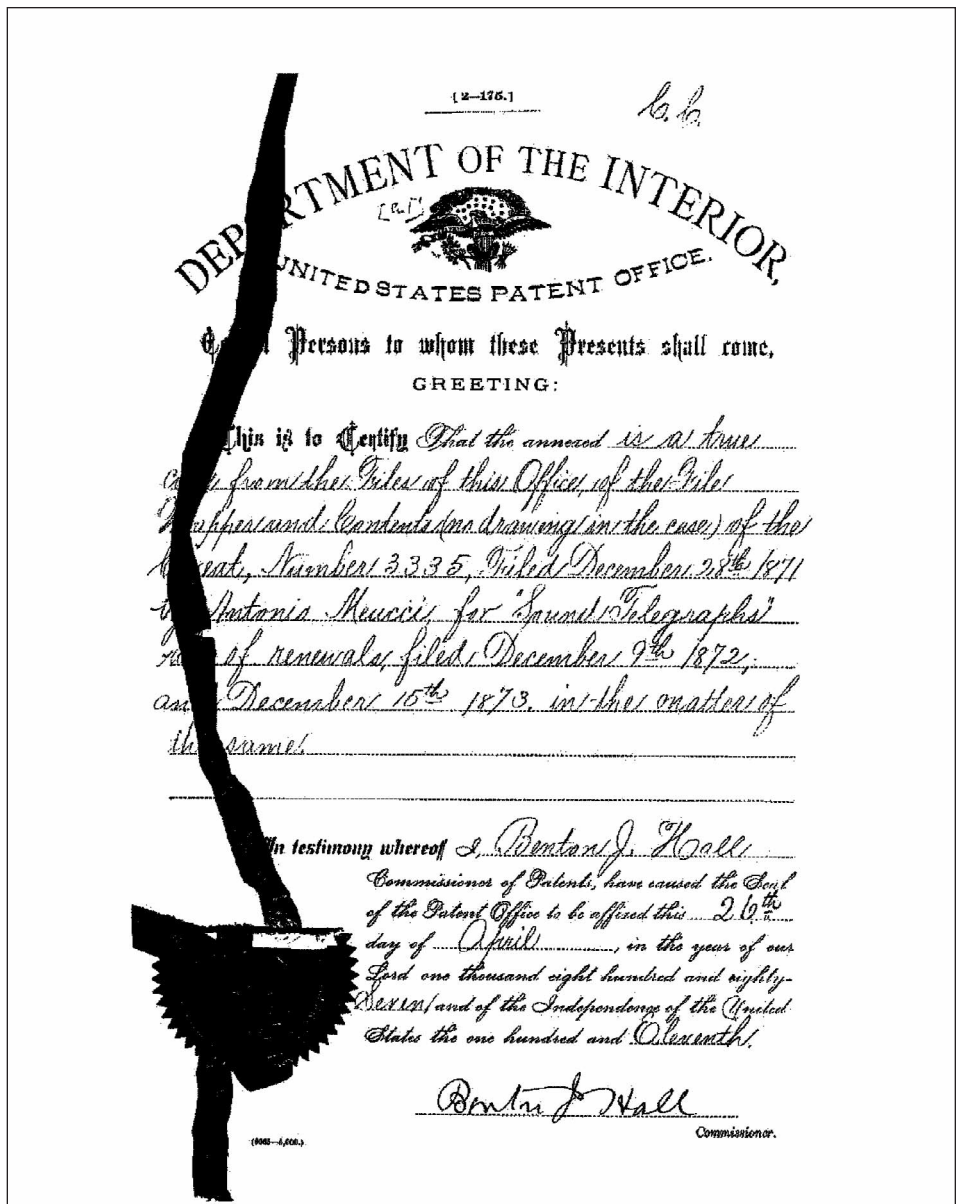 [2—175.]
C. C.
DEPARTMENT OF THE INTERIOR,
UNITED STATES PATENT OFFICE.
Persons to whom these Presents shall come,
GREETING:
This is to Certify That the annexed is a true
from the Files of this Office, of the File
Wrapper and Contents (no drawing in the case) of the
Caveat, Number 3335, Filed December 28th 1871
by Antonio Meucci, for "Sound Telegraphs"
of renewals, filed December 9th 1872,
and December 15th 1873. in the matter of
the same.
In testimony whereof I, Benton J. Hall
Commissioner of Patents, have caused the Seal
of the Patent Office to be affixed this 26th
day of April, in the year of our
Lord one thousand eight hundred and eighty-
Seven and of the Independence of the United
States the one hundred and Eleventh.
Benton J Hall
Commissioner.